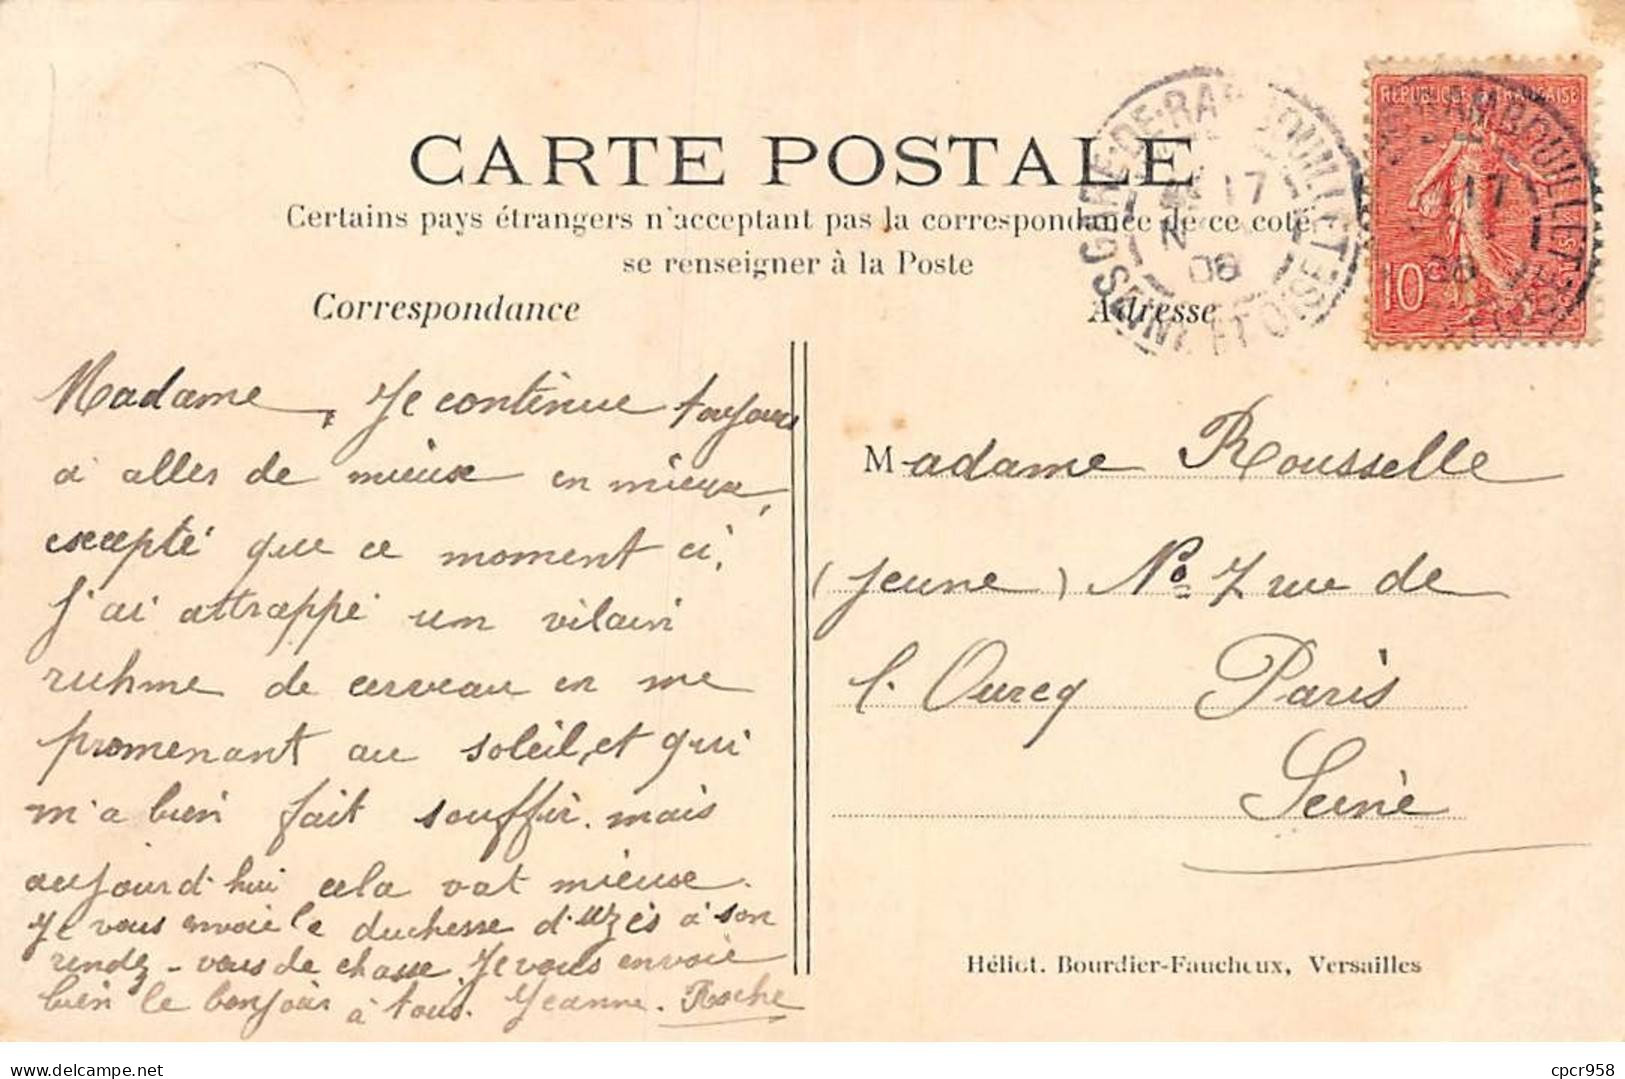 CARTE POSTALE
Certains pays étrangers n'acceptent pas la correspondance de ce coté
se renseigner à la Poste
Correspondance
Madame, Je continue toujours
à aller de mieux en mieux,
excepté que ce moment ci,
j'ai attrappé un vilain
ruhme de cerveau en me
promenant au soleil, et qui
m'a bien fait souffir. mais
aujourd'hui cela vat mieux.
Je vous envoie le duchesse d'Uzès à son
rendez-vous de chasse. Je vous envoie
bien le bonjour à tous. Jeanne. Roche
Adresse
Madame Rousselle
(Jeune) No 7 rue de
l'Ourcq Paris
Seine
Héliot. Bourdier-Faucheux, Versailles
GARE-DE-RAMBOUILLET
17
08
SEINE ET OISE
REPUBLIQUE FRANÇAISE
10
RAMBOUILLET
17
08
cpcr958